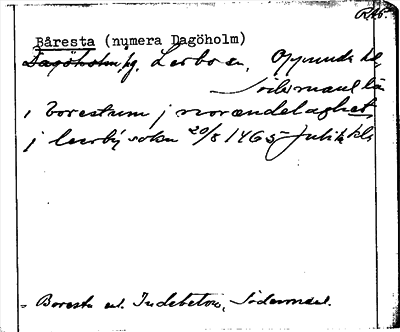 RA6.
Båresta (numera Dagöholm)
Dagöholm, jg. Lerbo sn, Oppunda hd,
Södermanl. län
i borestum j norændelaghet
j leerby sokn 20/8 1465 Julita kl.
Boresta enl. Indebetou, Södermanl.